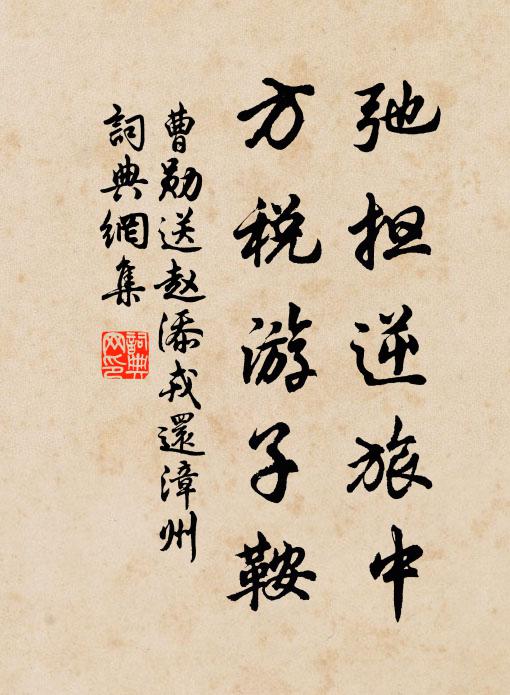 弛担逆旅中
方税游子鞍
曹勋送赵添戎還漳州
詞典網集
詞典网印